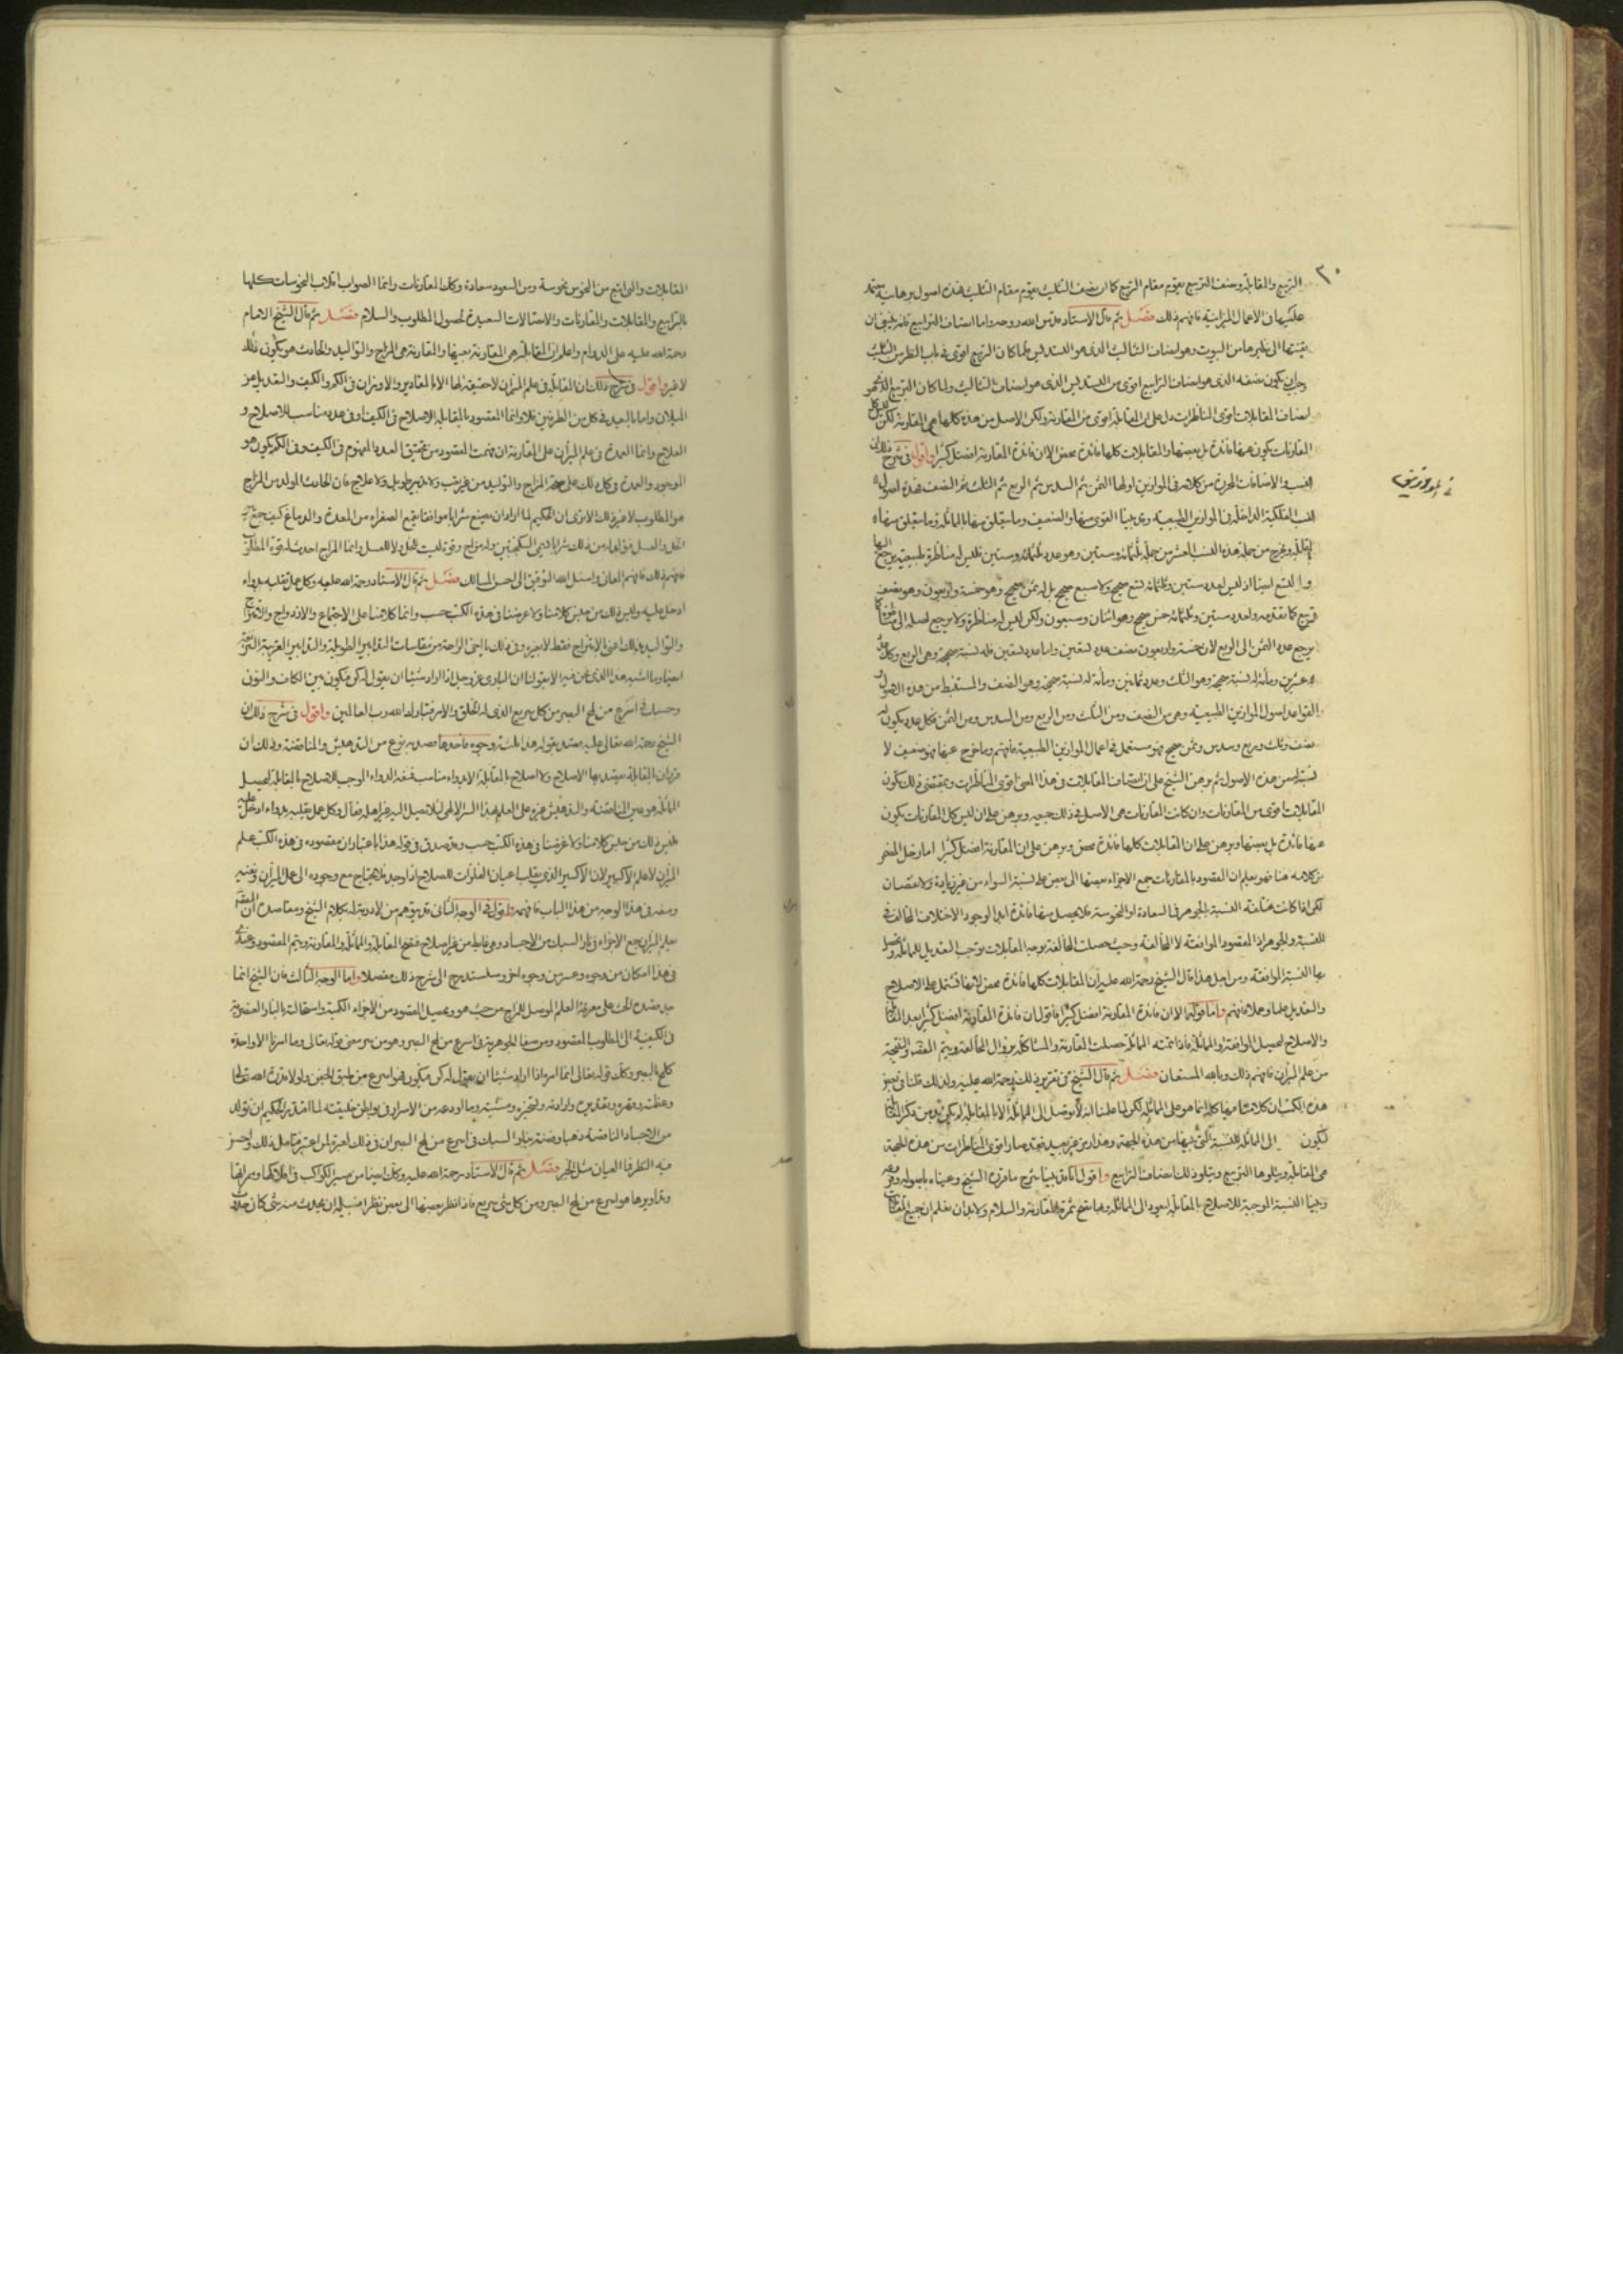 ٣٠
التربيع والمقابلة ونصف التربيع يقوم مقام الربع كما ان نصف التثليث يقوم مقام التثليث فهذه اصول برهانية
عليها في الاعمال الميزانية فافهم ذلك فصل ثم قال الاستاد قدس الله روحه واما انصاف الترابيع فانه ينبغي ان
الى نظيرها من البيوت وهو انصاف التثاليث الذي هو التسديس فلما كان الربيع اقوى في باب النظر من التثليث
وجب ان يكون نصفه الذي هو انصاف الترابيع اقوى من التسديس الذي هو انصاف التثاليث ولما كان التربيع الذي هو
انصاف المقابلات اقوى المناظرات دل على ان المقابلة اقوى من المقارنة ولكن الاصل من هذه كلها هي المقارنة لكن ليس كل
المقارنات يكون عنها فائدة بل بعضها والمقابلات كلها فائدة محض الا ان فائدة المقارنة افضل كثيرا واقول في شرح ذلك ان
النسب والاضافات المحررة من كلامه في الموازين اولها الثمن ثم السدس ثم الربع ثم الثلث ثم النصف فهذه اصول
النسب الفلكية الداخلة في الموازين الطبيعية وقد بينا القوي منها والضعيف وما يتعلق منها بالمماثلة وما يتعلق منها
بالمقابلة ويخرج من جملة هذه النسب العشر من جملة ثلثمائة وستين وهو عدد ثلثمائة وستين فليس له مناظرة طبيعية يرجع اليها
والتسع ايضا اذ ليس لعدد ستين وثلثمائة تسع صحيح ولا سبع صحيح بل له ثمن صحيح وهو خمسة واربعون وهو نصف
تربيع كما تقدم ولعدد ستين وثلثمائة خمس صحيح وهو اثنان وسبعون ولكن ليس له مناظرة ولا يرجع اصله الى
يرجع عدد الثمن الى الربع لان خمسة واربعون نصف عدد تسعين واما عدد تسعين فله نسبة صحيحة وهي الربع وكذلك عدد
عشرين ومائة له نسبة صحيحة وهو الثلث وعدد ثمانين ومائة له نسبة صحيحة وهو النصف والمستنبط من هذه الاصول
القواعد اصول الموازين الطبيعية وهي من النصف ومن الثلث ومن الربع ومن السدس ومن الثمن فكل عدد يكون له
نصف وثلث وربع وسدس وثمن صحيح فهو مستعمل في اعمال الموازين الطبيعية فافهم وما خرج عنها فهو ضعيف لا
نسبة له من هذه الاصول ثم برهن الشيخ على ان انصاف المقابلات في هذا المعنى اقوى المناظرات وبمقتضى ذلك يكون
المقابلات اقوى من المقارنات وان كانت المقارنات هي الاصل في ذلك جميعه وبرهن على ان ليس كل المقارنات يكون
عنها فائدة بل بعضها وبرهن على ان المقابلات كلها فائدة محض وبرهن على ان المقارنة افضل كثيرا اما رحل المنحر
من كلامه هنا فهو يعلم ان المقصود بالمقارنات جمع الاجزاء بعضها الى بعض على نسبة السواء من غير زيادة ولا نقصان
لكن اذا كانت مختلفة النسبة بالجوهر في السعادة او النحوسة فلا يحصل منها فائدة ابدا لوجود الاختلاف المخالف في
للنسبة والجوهر اذا المقصود الموافقة لا المخالفة وحيث حصلت المخالفة بوجه المقابلات يوجب التعديل للمماثلة
بها النسبة الموافقة ومن اجل هذا قال الشيخ رحمة الله عليه ان المقابلات كلها فائدة محض لانها تشتمل على الاصلاح
والتعديل علما وعملا فافهم واما قوله الا ان فائدة المقارنة افضل كثيرا فاقول ان فائدة المقارنة افضل كثيرا بعد المقابلة
والاصلاح لتحصيل الموافقة والمماثلة فاذا تمت المماثلة حصلت المقارنة والمشاكلة بزوال المخالفة ويتم المقصد والنتيجة
من علم الميزان فافهم ذلك وبالله المستعان فصل ثم قال الشيخ في تقرير ذلك رحمة الله عليه ولذلك قلنا في بعض
هذه الكتب ان كلامنا فيها كلها انما هو على المماثلة لكن لما علمنا انه لا يتوصل الى المماثلة الا بالمقابلة
لتكون الى المماثلة للنسبة التي بينها من هذه الجهة وهذا من غير بعيد فقد صار اقوى المناظرات من هذه الجهة
هي المقابلة ويتلوها التربيع ويتلو ذلك انصاف الترابيع واقول انا قد بينا شرح ما قرره الشيخ وعيناه باصوله
وبينا النسبة الموجبة للاصلاح بالمقابلة لتعود الى المماثلة وهنا تتضح ثمرة المقارنة والسلام ولا بد ان تعلم ان جميع المقارنات
المقابلات والتي تقع من النحوس نحوسة ومن السعود سعادة وكذا المقارنات وانما الصواب انقلاب النحوسات كلها
بالترابيع والمقابلات والمقارنات والاتصالات السعيدة لحصول المطلوب والسلام فصل ثم قال الشيخ الامام
رحمة الله عليه على الدوام واعلم ان المقابلة هي المقارنة بعينها والمقارنة هي المزاج والتواليد والحادث هو يكون ذلك
لا غير واقول في شرح ذلك ان المقابلة في علم الميزان لا حقيقة لها الا بالمقادير والاوزان في الكم والكيف والتعديل عن
الميلان واما بالبعد في كل من الطرفين فلا وانما المقصود بالمقابلة الاصلاح في الكيف او في عدد مناسب للاصلاح و
العلاج وانما العمدة في علم الميزان على المقارنة ان فهمت المقصود من تحقيق العدد المفهوم في الكيف وفي الكم يكون هو
الموجود والعمدة في كل ذلك على صحة المزاج والتوليد من غير تعب ولا تدبير طويل ولا علاج فان الحادث المولد من المزاج
هو المطلوب لا غير ذلك الا ترى ان الحكيم لما اراد ان يصنع شرابا موافقا يقمع الصفراء من المعدة والدماغ كيف جمع بين
الخل والعسل فتولد له من ذلك شراب يسمى السكنجبين وله مزاج وقوة ليست للخل ولا للعسل وانما المزاج احدث له قوة المطلوب
فافهم ذلك فافهم المعاني واسئل الله التوفيق الى احسن المسالك فصل ثم قال الاستاد رحمة الله عليه وكل عمل تقلبه بدواء
ادخل عليه وليس ذلك من جنس كلامنا ولا غرضنا في هذه الكتب حسب وانما كلامنا على الاجتماع والازدواج والامتزاج
والتواليد بذلك اعني الامتزاج فقط لا بغيره وفي ذلك يا اخي الراحة من مقاسات التدابير الطويلة والتدابير القريبة
ايضا وما اشبه هذا الذي نحن فيه الا بقولنا ان الباري عز وجل اذا اراد شيئا ان يقول له كن فيكون بين الكاف والنون
وحسبك في اسرع من لمح البصر من كل سريع الذي له الخلق والامر فتبارك الله رب العالمين واقول في شرح ذلك ان
الشيخ رحمة الله تعالى عليه يقصد بقوله هذا ثلثة وجوه فاحدها قصد به نوع من التدهيش والمناقضة وذلك ان
قرر ان المقابلة يقصد بها الاصلاح ولا اصلاح بالمقابلة الا بدواء مناسب فنفعه الدواء الموجب للاصلاح بالمقابلة لتحصيل
المماثلة هو عين المناقضة والتدهيش غيرة على العلم بهذا السر الالهي لئلا يصل اليه غير اهله فقال وكل عمل تقلبه بدواء ادخل عليه
فليس ذلك من جنس كلامنا ولا غرضنا في هذه الكتب حسب وقد صدق في قوله هذا باعتبار ان مقصوده في هذه الكتب علم
الميزان لا علم الاكسير لان الاكسير الذي يقلب اعيان الفلزات للصلاح اذا وجد فلا يحتاج مع وجوده الى عمل الميزان
ومعه في هذا الوجه من هذا الباب فافهمه واقول في الوجه الثاني قد يتوهم من لا دربة له بكلام الشيخ ومقاصده ان المقصد
بعلم الميزان جمع الاجزاء في نار السبك من الاجساد وهي غليظ من غير اصلاح فتصح المقابلة والمماثلة والمقارنة ويتم المقصود وعندي
في هذا امكان من وجوه وعسر من وجوه اخر وسنستدرج الى شرح ذلك مفصلا واما الوجه الثالث فان الشيخ انما
جل قصده الحث على معرفة العلم الموصل للمزاج من حيث هو وتحصيل المقصود من الاجزاء الكمية واستحالته بالنار العنصرية
في الكيفية الى المطلوب المقصود ومن صفا الجوهرية في اسرع من لمح البصر وهو من سر معنى قوله تعالى وما امرنا الا واحدة
كلمح بالبصر وكذلك قوله تعالى انما امره اذا اراد شيئا ان يقول له كن فيكون فهو اسرع من طبق الجفن ولولا قدرة الله تعالى
وعظمته وقهره وتقديره وارادته وتخيره ومشيته وما اودعه من الاسرار في بواطن خليقته لما اقتدر الحكيم ان يولد
من الاجساد الناقصة ذهبا وفضة بنار السبك في اسرع من لمح البصر ان في ذلك لعبرة لمن اعتبر فتامل ذلك واحسن
فيه النظر فما العيان مثل الخبر فصل ثم قال الاستاد رحمة الله عليه وكذلك ايضا من مسير الكواكب في افلاكها وممراتها
وتداويرها هو اسرع من لمح البصر ومن كل شئ سريع فاذا نظر بعضها الى بعض نظرا فسبيله ان يحدث منه شئ كان